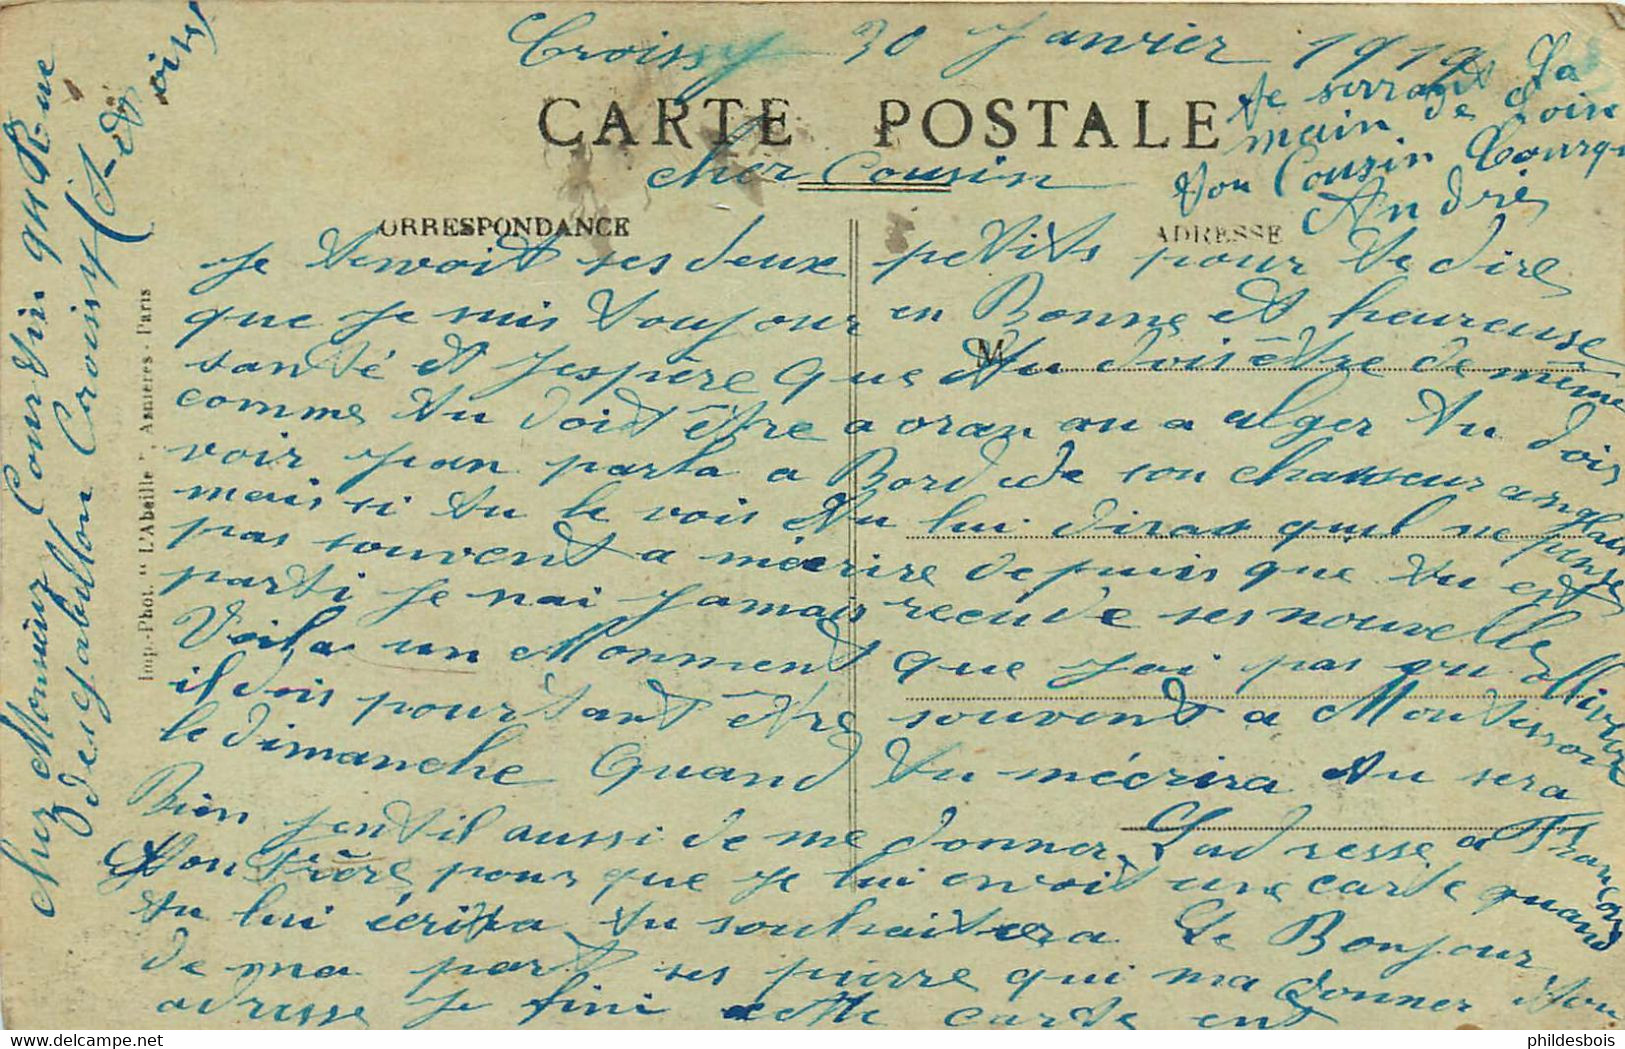 Croissy 30 Janvier 1919
CARTE POSTALE
cher Cousin
CORRESPONDANCE
ADRESSE
M
Je tenvoit ses deux petits pour te dire
que je suis toujour en Bonne et heureuse
santé et Jespère que tu dois être de même
comme tu doit être a oran ou a alger tu dois
voir jean parla a Bord de son chasseur anglais
mais si tu le vois tu lui diras quil ne pense
pas souvent a mécrire depuis que tu est
parti je nai jamais recu de ses nouvelle
Voila un Monment que jai pas vu
il dois pourtant être souvent a
le dimanche quand tu mécrira tu sera
Bien jentil aussi de me donner Ladresse a Francois
Mon Frère pour que je lui envoit une carte quand
tu lui écrira tu souhaitera Le Bonjour
de ma part ses pierre qui ma donner ton
adresse je fini cette carte ent
te serrant La
main de Loin
ton Cousin
André
chez Monsieur
des gabillon Croissy (S-et-oise)
Imp.-Phot. "L'Abeille", Asnières - Paris
phildesbois
https://www.delcampe.net